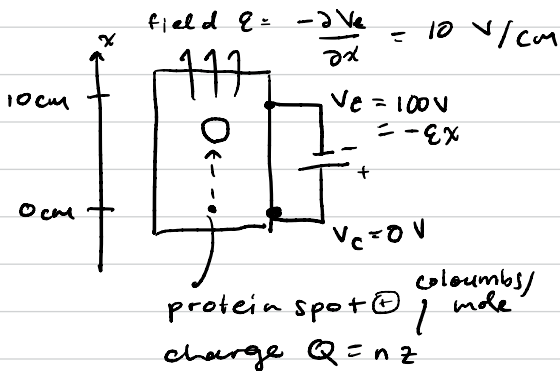 field ε = -∂Ve/∂x = 10 V/cm
x
10cm
Ve = 100V
= -εx
-
+
0cm
Vc = 0 V
protein spot ⊕
coloumbs/mole
charge Q = n z